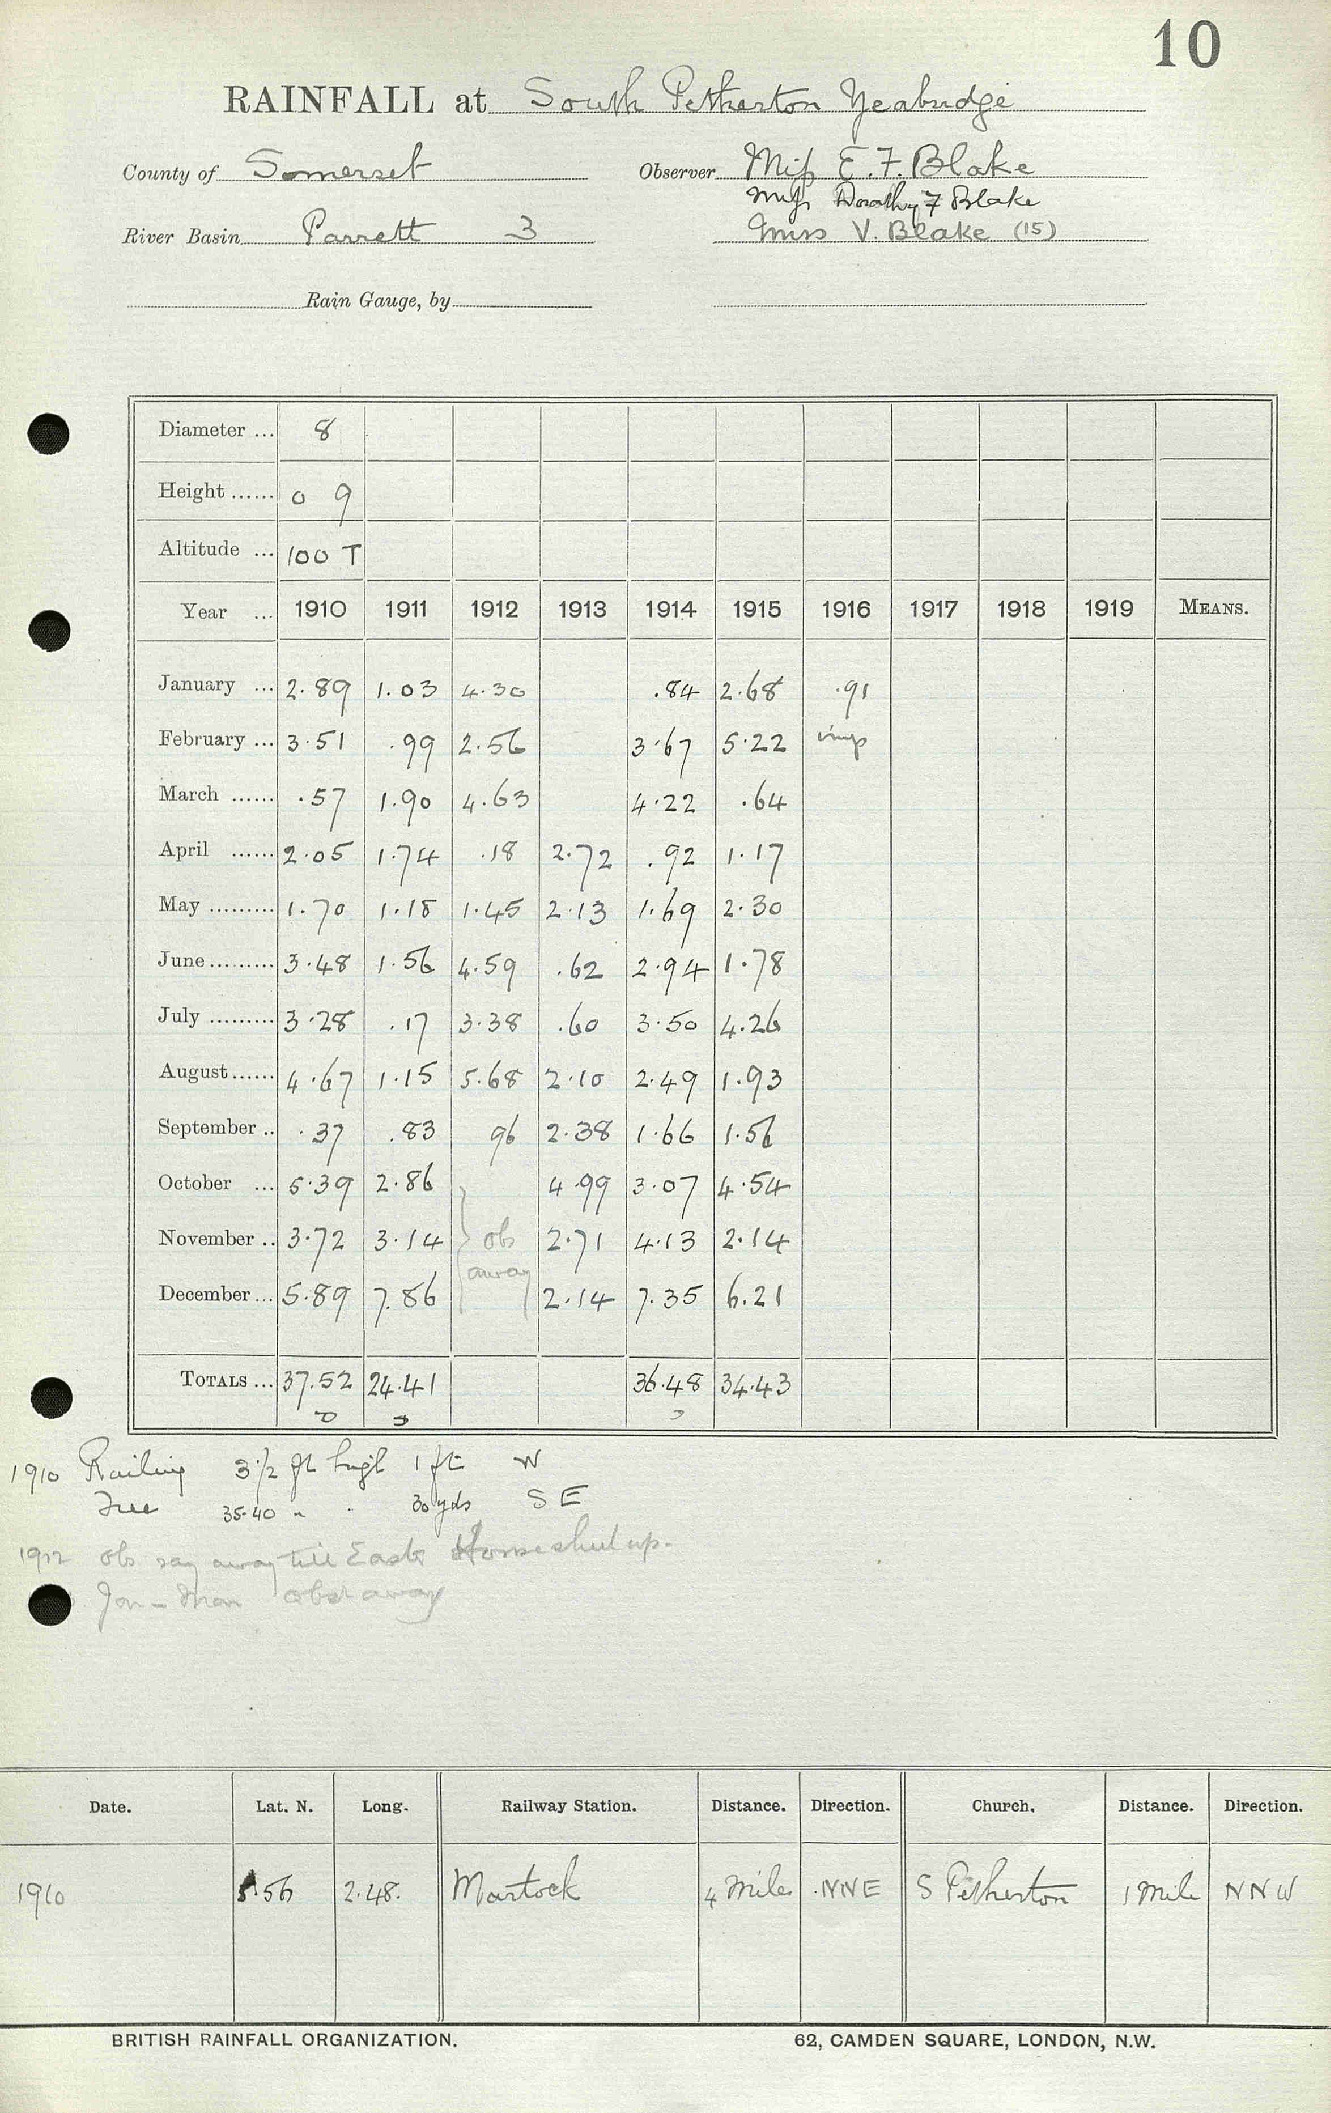 10
RAINFALL at South Petherton Yeabridge
County of Somerset Observer Miss E. F. Blake
Miss Dorothy F Blake
River Basin Parrett 3 Miss V. Blake (15)
Rain Gauge, by
Diameter ... 8
Height ...... 0 9
Altitude ... 100 T
Year ... 1910 1911 1912 1913 1914 1915 1916 1917 1918 1919 MEANS.
January ... 2.89 1.03 4.30 .84 2.68 .91
February ... 3.51 .99 2.56 3.67 5.22
March ...... .57 1.90 4.63 4.22 .64
April ...... 2.05 1.74 .18 2.72 .92 1.17
May ......... 1.70 1.18 1.45 2.13 1.69 2.30
June ......... 3.48 1.56 4.59 .62 2.94 1.78
July ......... 3.28 .17 3.38 .60 3.50 4.26
August ...... 4.67 1.15 5.68 2.10 2.49 1.93
September .. .37 .83 96 2.38 1.66 1.56
October ... 5.39 2.86 4.99 3.07 4.54
November .. 3.72 3.14 obs 2.71 4.13 2.14
away
December ... 5.89 7.86 2.14 7.35 6.21
TOTALS ... 37.52 24.41 36.48 34.43
1910 Railing 3½ ft high 1 ft W
Tree 35.40 " " 30 yds S E
1912 obs say away till East House shut up.
Jan - Mar obsr away
Date. Lat. N. Long. Railway Station. Distance. Direction. Church. Distance. Direction.
1910 56 2.48. Martock 4 Miles NNE S Petherton 1 mile NNW
BRITISH RAINFALL ORGANIZATION. 62, CAMDEN SQUARE, LONDON, N.W.